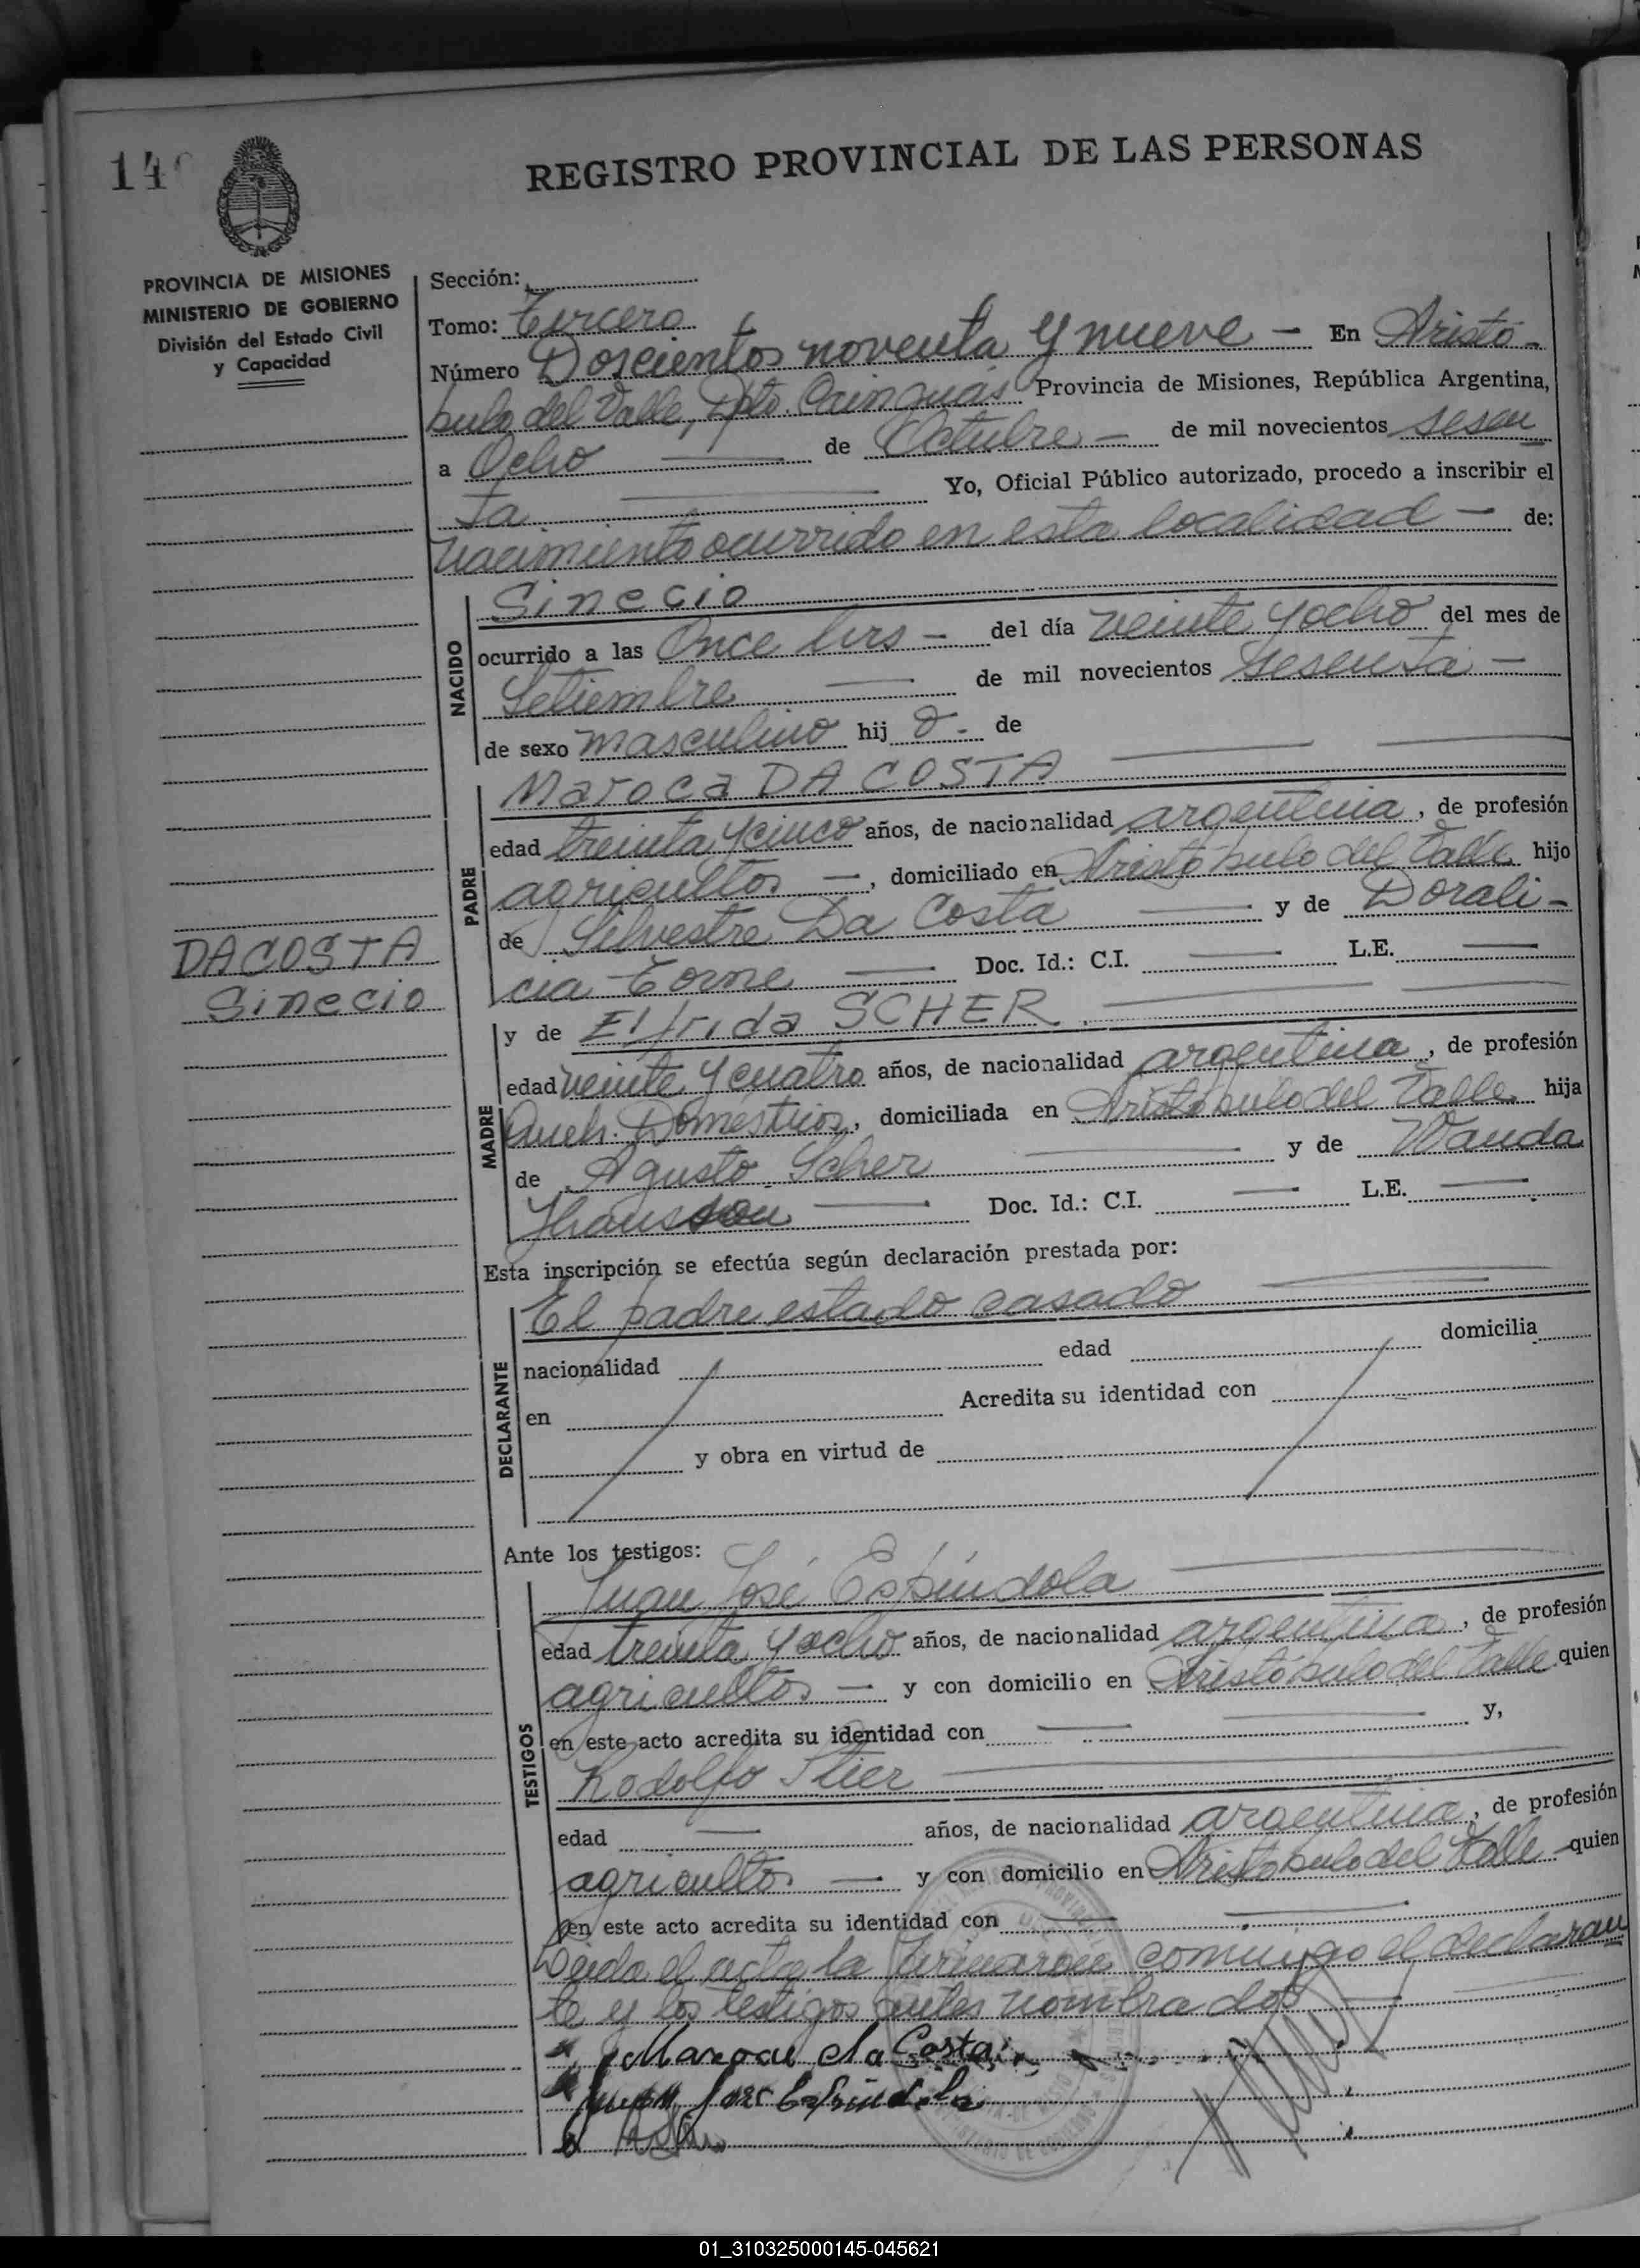 14
REGISTRO PROVINCIAL DE LAS PERSONAS
PROVINCIA DE MISIONES
MINISTERIO DE GOBIERNO
División del Estado Civil
y Capacidad
Sección:
Tomo: Tercero
Número Doscientos noventa y nueve — En Aristó-
bulo del Valle, Dpto. Cainguás Provincia de Misiones, República Argentina,
a Ocho — de Octubre — de mil novecientos sesen
ta — Yo, Oficial Público autorizado, procedo a inscribir el
nacimiento ocurrido en esta localidad — de:
NACIDO
Sinecio
ocurrido a las Once hrs — del día veinte y ocho del mes de
Setiembre — de mil novecientos sesenta —
de sexo masculino hij o - de
PADRE
Maroca DA COSTA
edad treinta y cinco años, de nacionalidad argentina, de profesión
agricultor —, domiciliado en Aristóbulo del Valle hijo
de Silvestre Da Costa — y de Dorali-
cia Torne — Doc. Id.: C.I. — L.E. —
DA COSTA
Sinecio
MADRE
y de Elfrida SCHER
edad veinte y cuatro años, de nacionalidad argentina, de profesión
Queh. Domésticos, domiciliada en Aristóbulo del Valle hija
de Agusto Scher — y de Wanda
— Doc. Id.: C.I. — L.E. —
Esta inscripción se efectúa según declaración prestada por:
DECLARANTE
El padre estado casado
nacionalidad edad domicilia
en Acredita su identidad con
y obra en virtud de
Ante los testigos:
TESTIGOS
Juan José Espíndola
edad treinta y ocho años, de nacionalidad argentina, de profesión
agricultor — y con domicilio en Aristóbulo del Valle quien
en este acto acredita su identidad con — y,
Rodolfo Stier
edad — años, de nacionalidad argentina, de profesión
agricultor — y con domicilio en Aristóbulo del Valle quien
en este acto acredita su identidad con —
Leída el acta la firmaron conmigo el declaran
te y los testigos antes nombrados
Maroca da Costa
Juan Jose Espindola
01_310325000145-045621